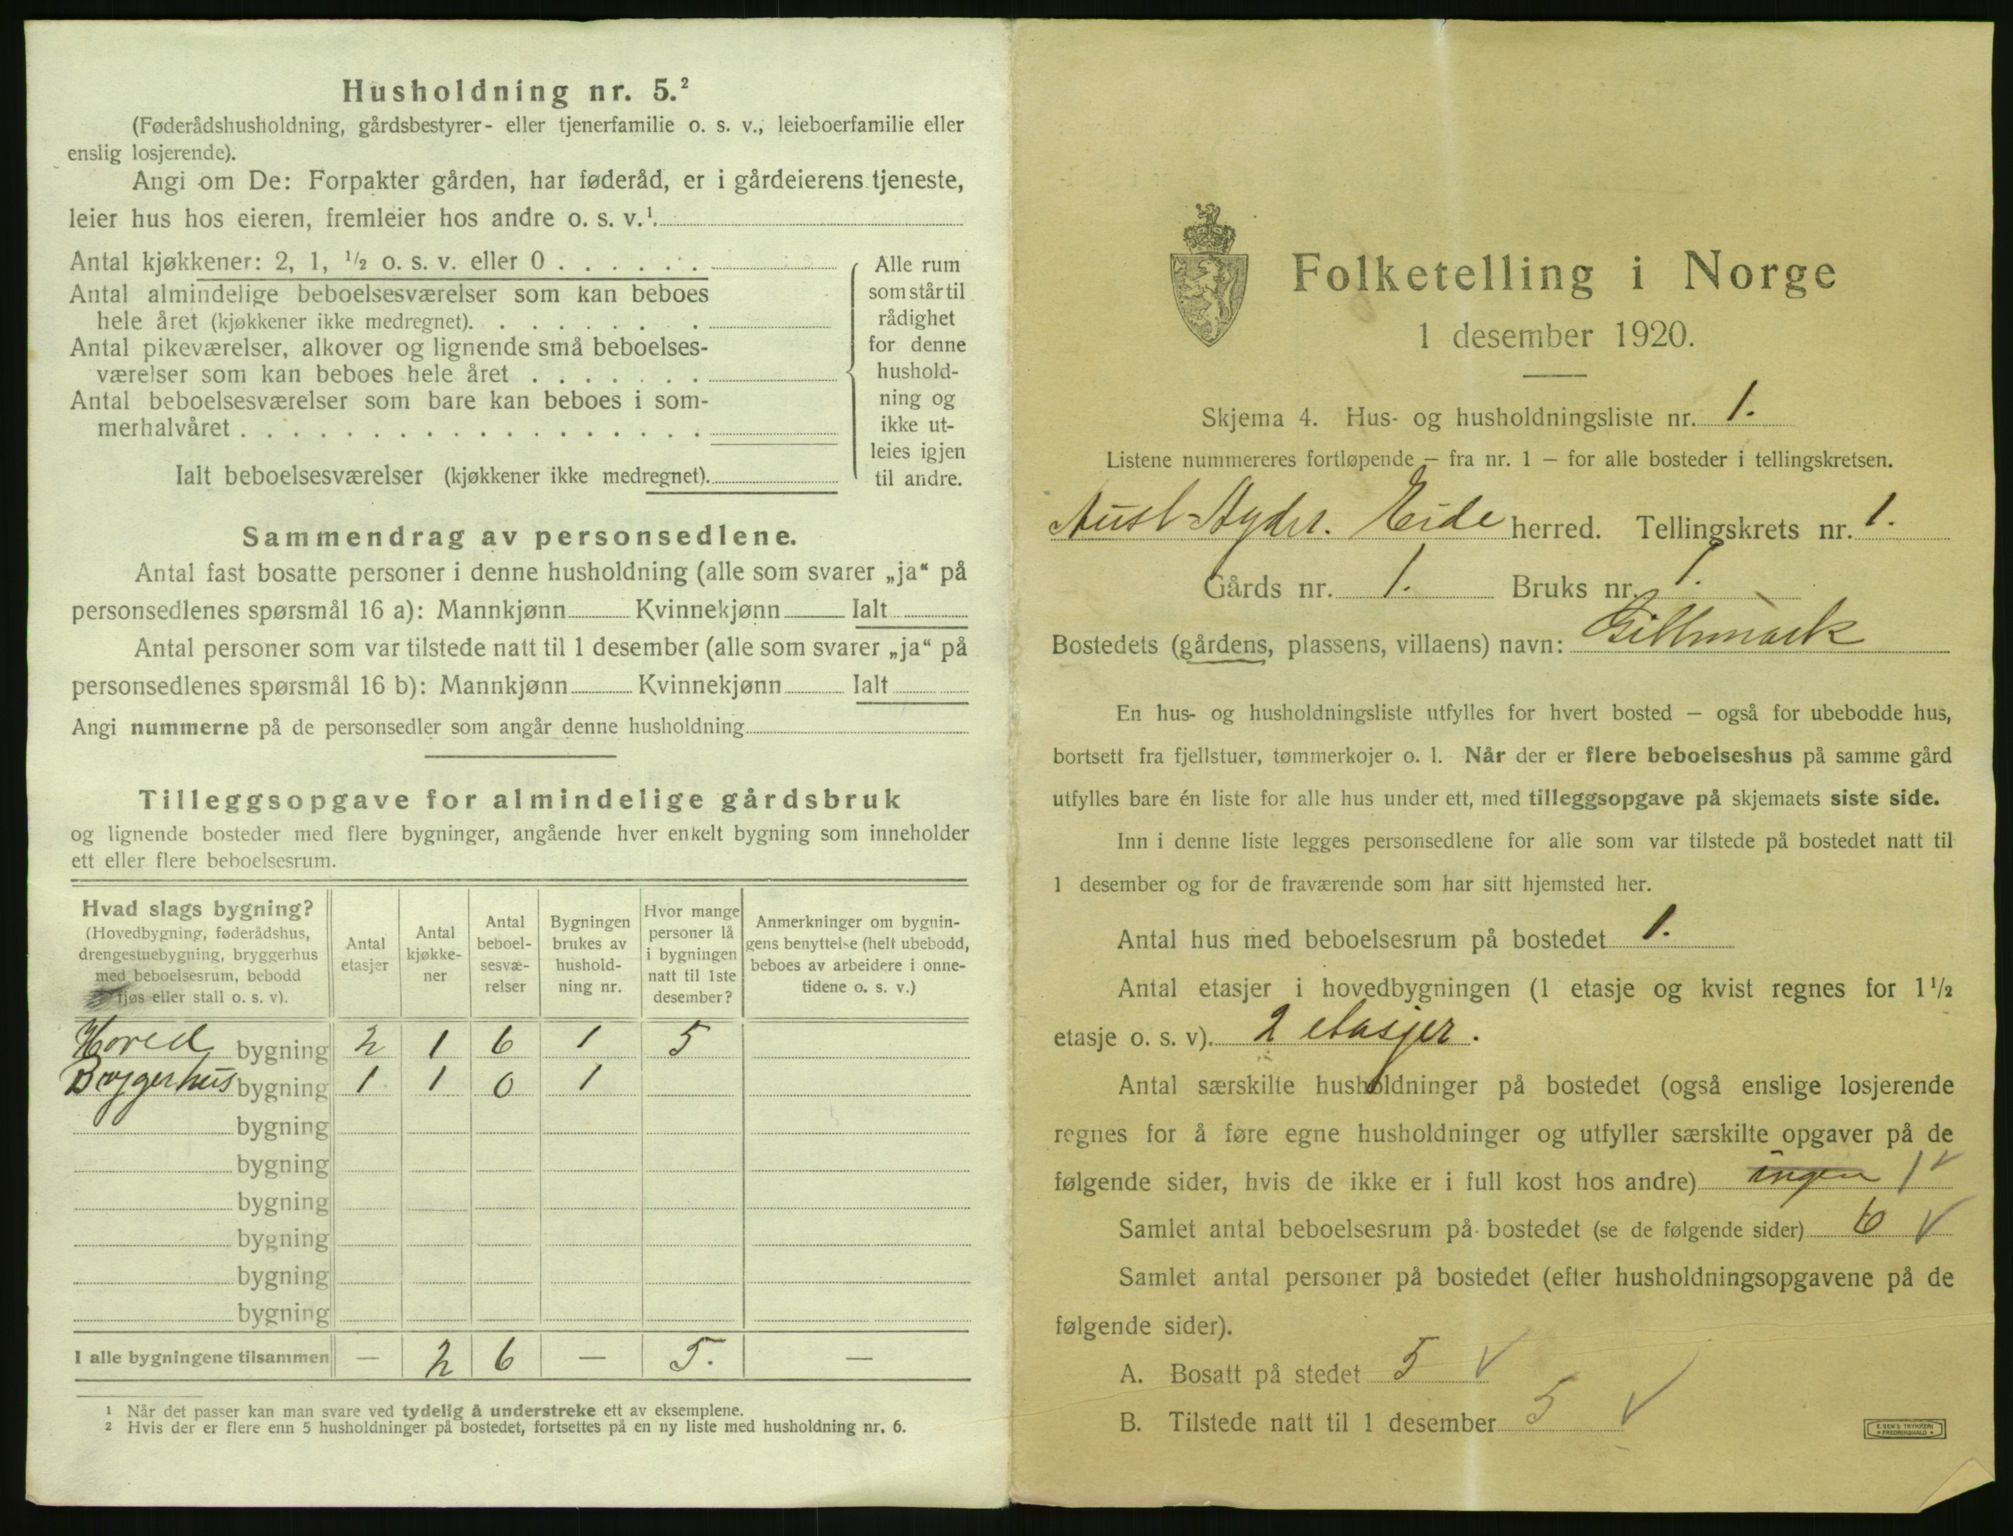 Husholdning nr. 5.²
(Føderådshusholdning, gårdsbestyrer- eller tjenerfamilie o. s. v., leieboerfamilie eller
enslig losjerende).
Angi om De: Forpakter gården, har føderåd, er i gårdeierens tjeneste,
leier hus hos eieren, fremleier hos andre o. s. v.¹.
Antal kjøkkener: 2, 1, ½ o. s. v. eller 0 . . . . . .
Antal almindelige beboelsesværelser som kan beboes
hele året (kjøkkener ikke medregnet). . . . . . . . .
Antal pikeværelser, alkover og lignende små beboelses-
værelser som kan beboes hele året . . . . . . .
Antal beboelsesværelser som bare kan beboes i som-
merhalvåret . . . . . . . . . . . . . . . . . .
Ialt beboelsesværelser (kjøkkener ikke medregnet).
Alle rum
som står til
rådighet
for denne
hushold-
ning og
ikke ut-
leies igjen
til andre.
Sammendrag av personsedlene.
Antal fast bosatte personer i denne husholdning (alle som svarer „ja“ på
personsedlenes spørsmål 16 a): Mannkjønn Kvinnekjønn Ialt
Antal personer som var tilstede natt til 1 desember (alle som svarer „ja“ på
personsedlenes spørsmål 16 b): Mannkjønn Kvinnekjønn Ialt
Angi nummerne på de personsedler som angår denne husholdning
Tilleggsopgave for almindelige gårdsbruk
og lignende bosteder med flere bygninger, angående hver enkelt bygning som inneholder
ett eller flere beboelsesrum.
Hvad slags bygning?
(Hovedbygning, føderådshus,
drengestuebygning, bryggerhus
med beboelsesrum, bebodd
fjøs eller stall o. s. v).
Antal
etasjer
Antal
kjøkke-
ner
Antal
beboel-
sesvæ-
relser
Bygningen
brukes av
hushold-
ning nr.
Hvor mange
personer lå
i bygningen
natt til 1ste
desember?
Anmerkninger om bygnin-
gens benyttelse (helt ubebodd,
beboes av arbeidere i onne-
tidene o. s. v.)
Hoved bygning 2 1 6 1 5
Bryggerhus bygning 1 1 0 1
bygning
bygning
bygning
bygning
bygning
bygning
I alle bygningene tilsammen — 2 6 — 5. —
¹ Når det passer kan man svare ved tydelig å understreke ett av eksemplene.
² Hvis der er flere enn 5 husholdninger på bostedet, fortsettes på en ny liste med husholdning nr. 6.
Folketelling i Norge
1 desember 1920.
Skjema 4. Hus- og husholdningsliste nr. 1.
Listene nummereres fortløpende – fra nr. 1 – for alle bosteder i tellingskretsen.
Aust-Agder. Eide herred. Tellingskrets nr. 1.
Gårds nr. 1. Bruks nr. 1.
Bostedets (gårdens, plassens, villaens) navn:
En hus- og husholdningsliste utfylles for hvert bosted – også for ubebodde hus,
bortsett fra fjellstuer, tømmerkojer o. l. Når der er flere beboelseshus på samme gård
utfylles bare én liste for alle hus under ett, med tilleggsopgave på skjemaets siste side.
Inn i denne liste legges personsedlene for alle som var tilstede på bostedet natt til
1 desember og for de fraværende som har sitt hjemsted her.
Antal hus med beboelsesrum på bostedet 1.
Antal etasjer i hovedbygningen (1 etasje og kvist regnes for 1½
etasje o. s. v). 2 etasjer.
Antal særskilte husholdninger på bostedet (også enslige losjerende
regnes for å føre egne husholdninger og utfyller særskilte opgaver på de
følgende sider, hvis de ikke er i full kost hos andre) ingen 1 ✓
Samlet antal beboelsesrum på bostedet (se de følgende sider) 6 ✓
Samlet antal personer på bostedet (efter husholdningsopgavene på de
følgende sider).
A. Bosatt på stedet 5 ✓
B. Tilstede natt til 1 desember 5 ✓